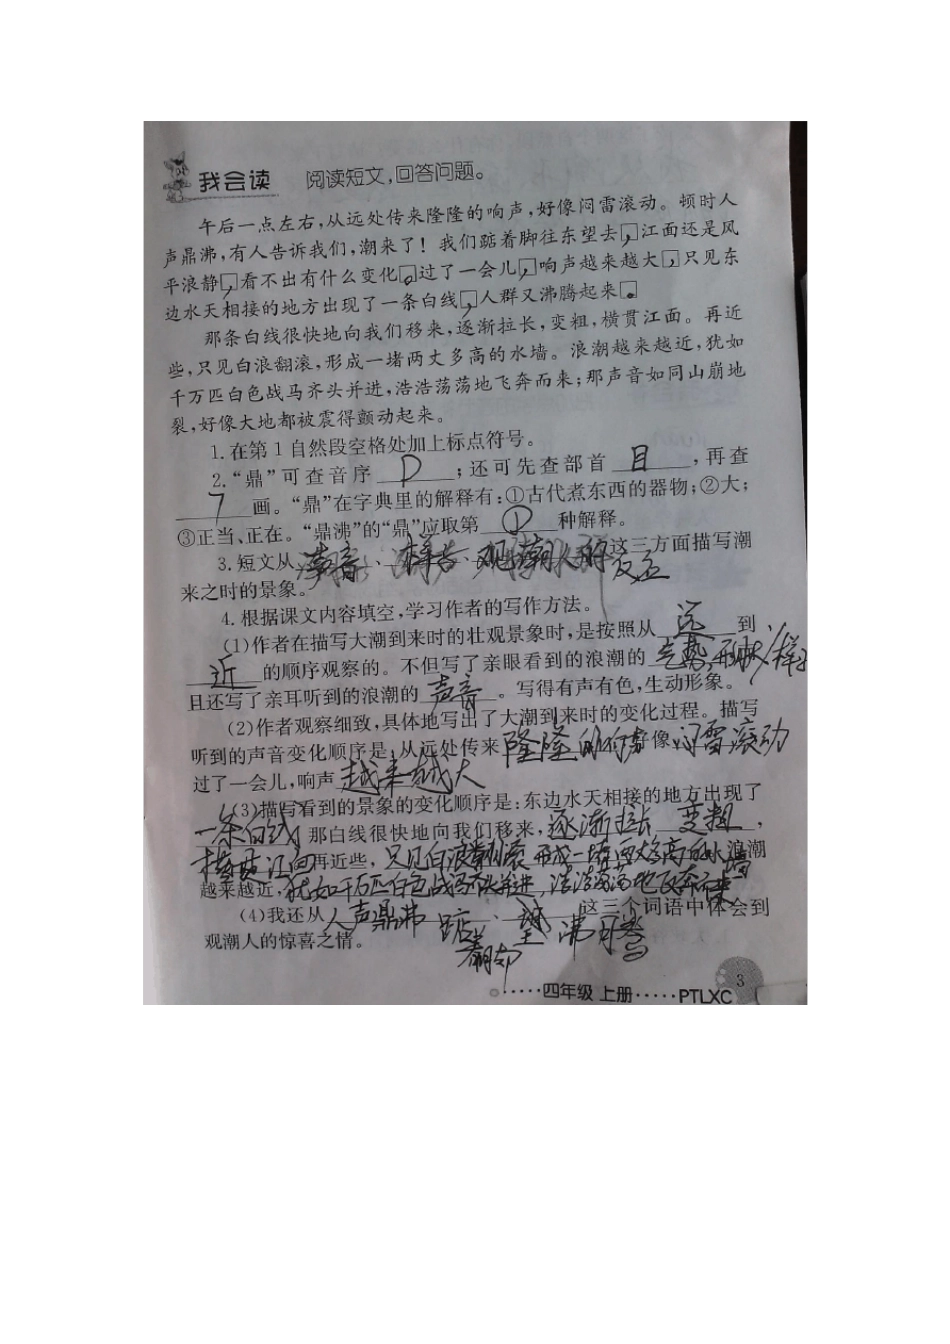 我会读 阅读短文,回答问题。
午后一点左右,从远处传来隆隆的响声,好像闷雷滚动。顿时人
声鼎沸,有人告诉我们,潮来了!我们踮着脚往东望去,江面还是风
平浪静,看不出有什么变化。过了一会儿,响声越来越大,只见东
边水天相接的地方出现了一条白线,人群又沸腾起来。
那条白线很快地向我们移来,逐渐拉长,变粗,横贯江面。再近
些,只见白浪翻滚,形成一堵两丈多高的水墙。浪潮越来越近,犹如
千万匹白色战马齐头并进,浩浩荡荡地飞奔而来;那声音如同山崩地
裂,好像大地都被震得颤动起来。
1.在第1自然段空格处加上标点符号。
2.“鼎”可查音序 D ;还可先查部首 目 ,再查
7 画。“鼎”在字典里的解释有:①古代煮东西的器物;②大;
③正当、正在。“鼎沸”的“鼎”应取第 ① 种解释。
3.短文从 声音 、 样子 、 观潮人的反应 这三方面描写潮
来之时的景象。
4.根据课文内容填空,学习作者的写作方法。
(1)作者在描写大潮到来时的壮观景象时,是按照从 远 到
近 的顺序观察的。不但写了亲眼看到的浪潮的 气势、形状/样子
且还写了亲耳听到的浪潮的 声音 。写得有声有色,生动形象。
(2)作者观察细致,具体地写出了大潮到来时的变化过程。描写
听到的声音变化顺序是:从远处传来 隆隆的响声 好像 闷雷滚动
过了一会儿,响声 越来越大
(3)描写看到的景象的变化顺序是:东边水天相接的地方出现了
一条白线,那白线很快地向我们移来, 逐渐拉长 变粗 ,
横贯江面 再近些, 只见白浪翻滚 形成一堵两丈多高的水墙 浪潮
越来越近, 犹如千万匹白色战马齐头并进,浩浩荡荡地飞奔而来
(4)我还从 人声鼎沸 踮着脚 、 望 沸腾 这三个词语中体会到
观潮人的惊喜之情。
四年级 上册 PTLXC 3